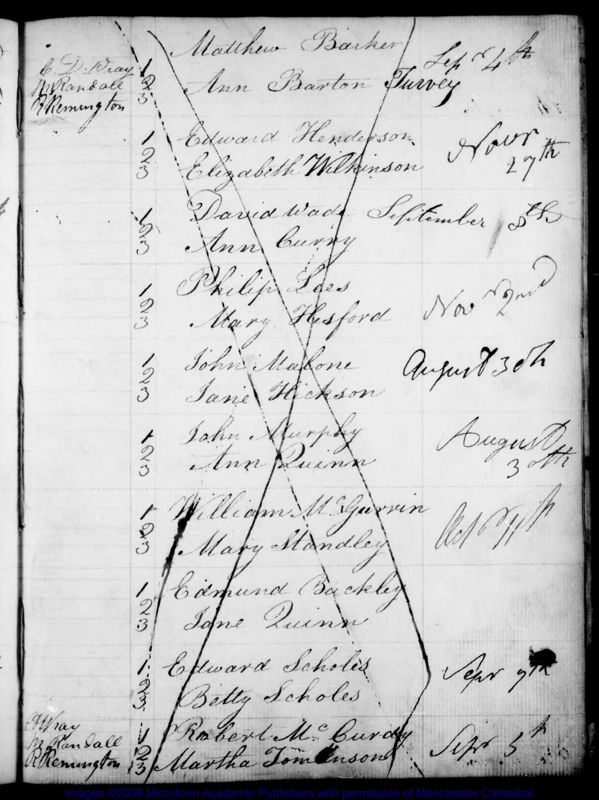 Matthew Barker
C. D. Wray 1 Sepr 4th
R Randall 2 Ann Barton Turvey
R Remington 3
1 Edward Henderson Novr
2 27th
3 Elizabeth Wilkinson
1 David Wade September 8th
2
3 Ann Curry
1 Philip Lees
2 Novr 2nd
3 Mary Hesford
1 John Malone August 30th
2
3 Jane Hickson
1 John Murphy August
2 30th
3 Ann Quinn
1 William McGurrin
2 Octr
3 Mary Standley
1 Edmund Buckley
2
3 Jane Quinn
1 Edward Scholes
2 Sepr 7th
3 Betty Scholes
Wray 1 Robert McCurdy
R Randall 2 Sepr 5th
R Remington 3 Martha Tomlinson
Images ©2008 Microform Academic Publishers with permission of Manchester Cathedral